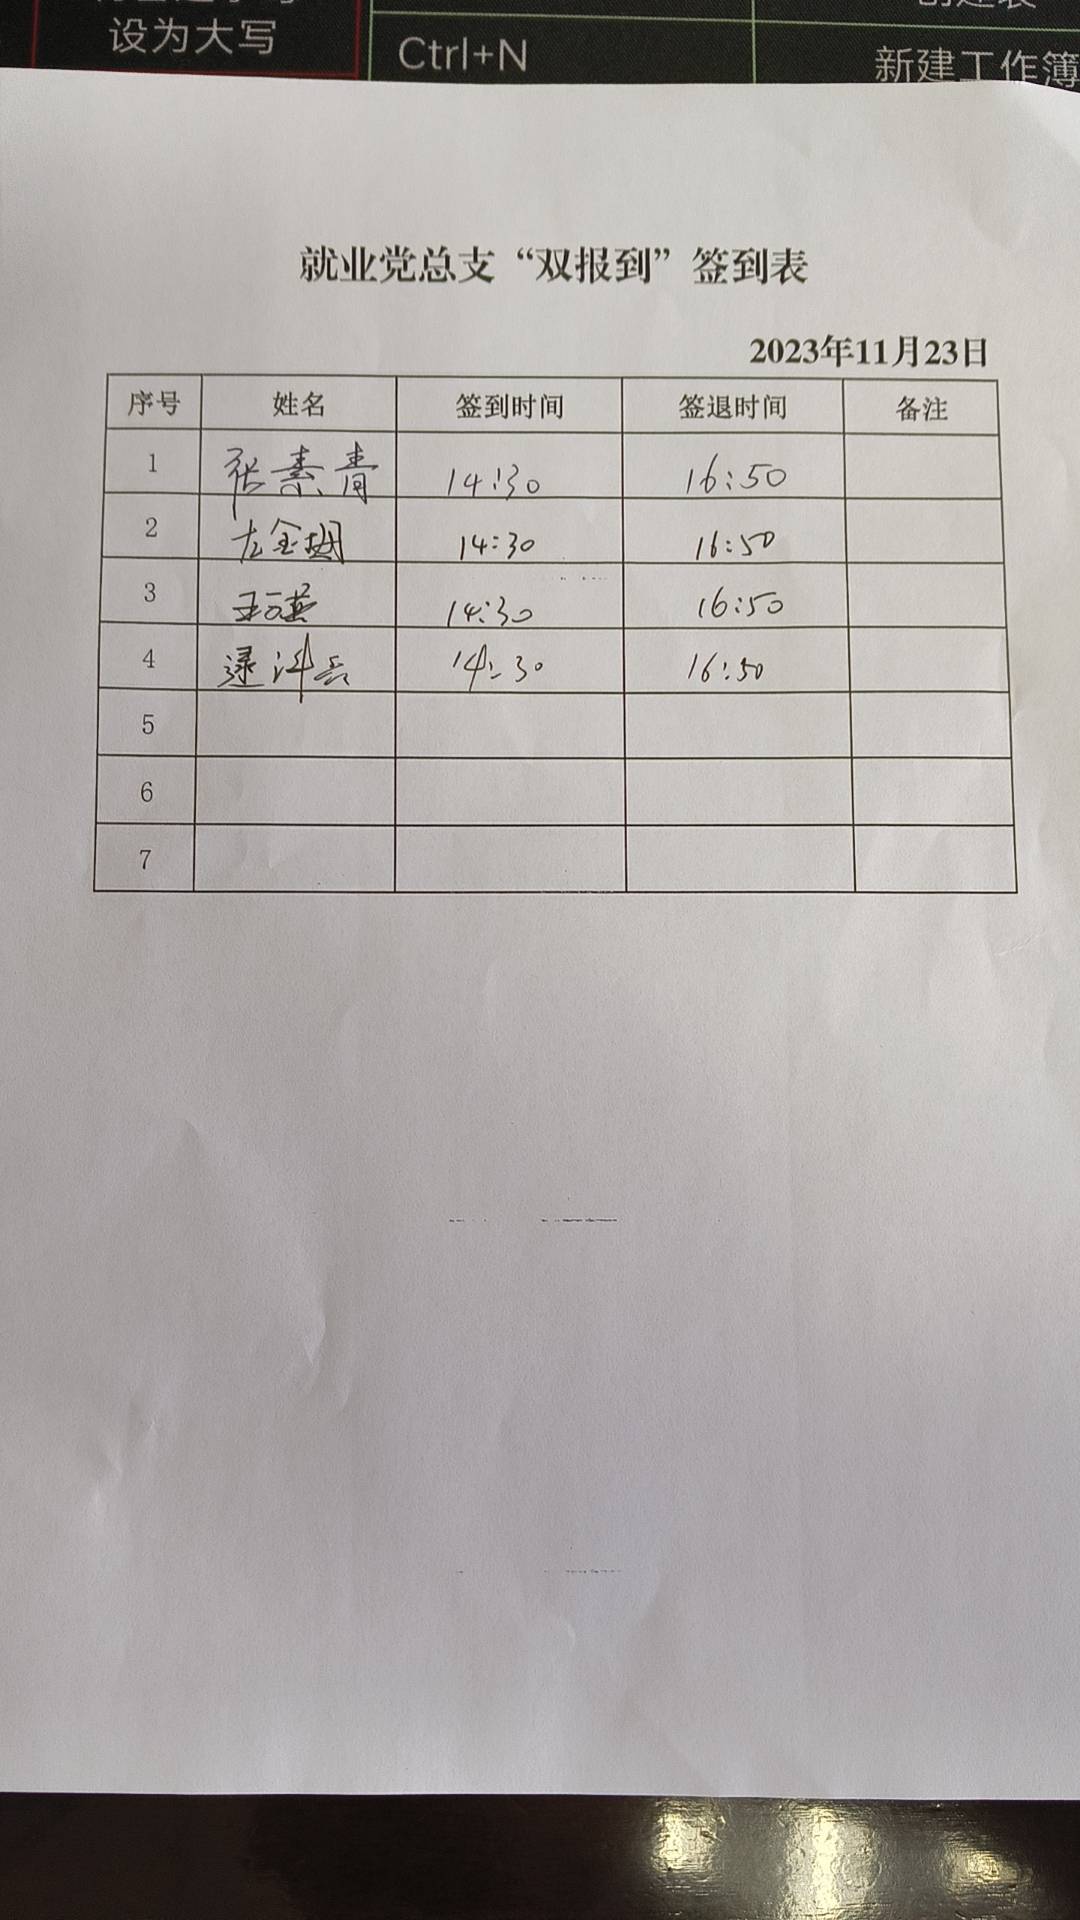 设为大写
Ctrl+N
新建工作簿
就业党总支“双报到”签到表
2023年11月23日
序号 姓名 签到时间 签退时间 备注
1 张素青 14:30 16:50
2 14:30 16:50
3 14:30 16:50
4 14:30 16:50
5
6
7